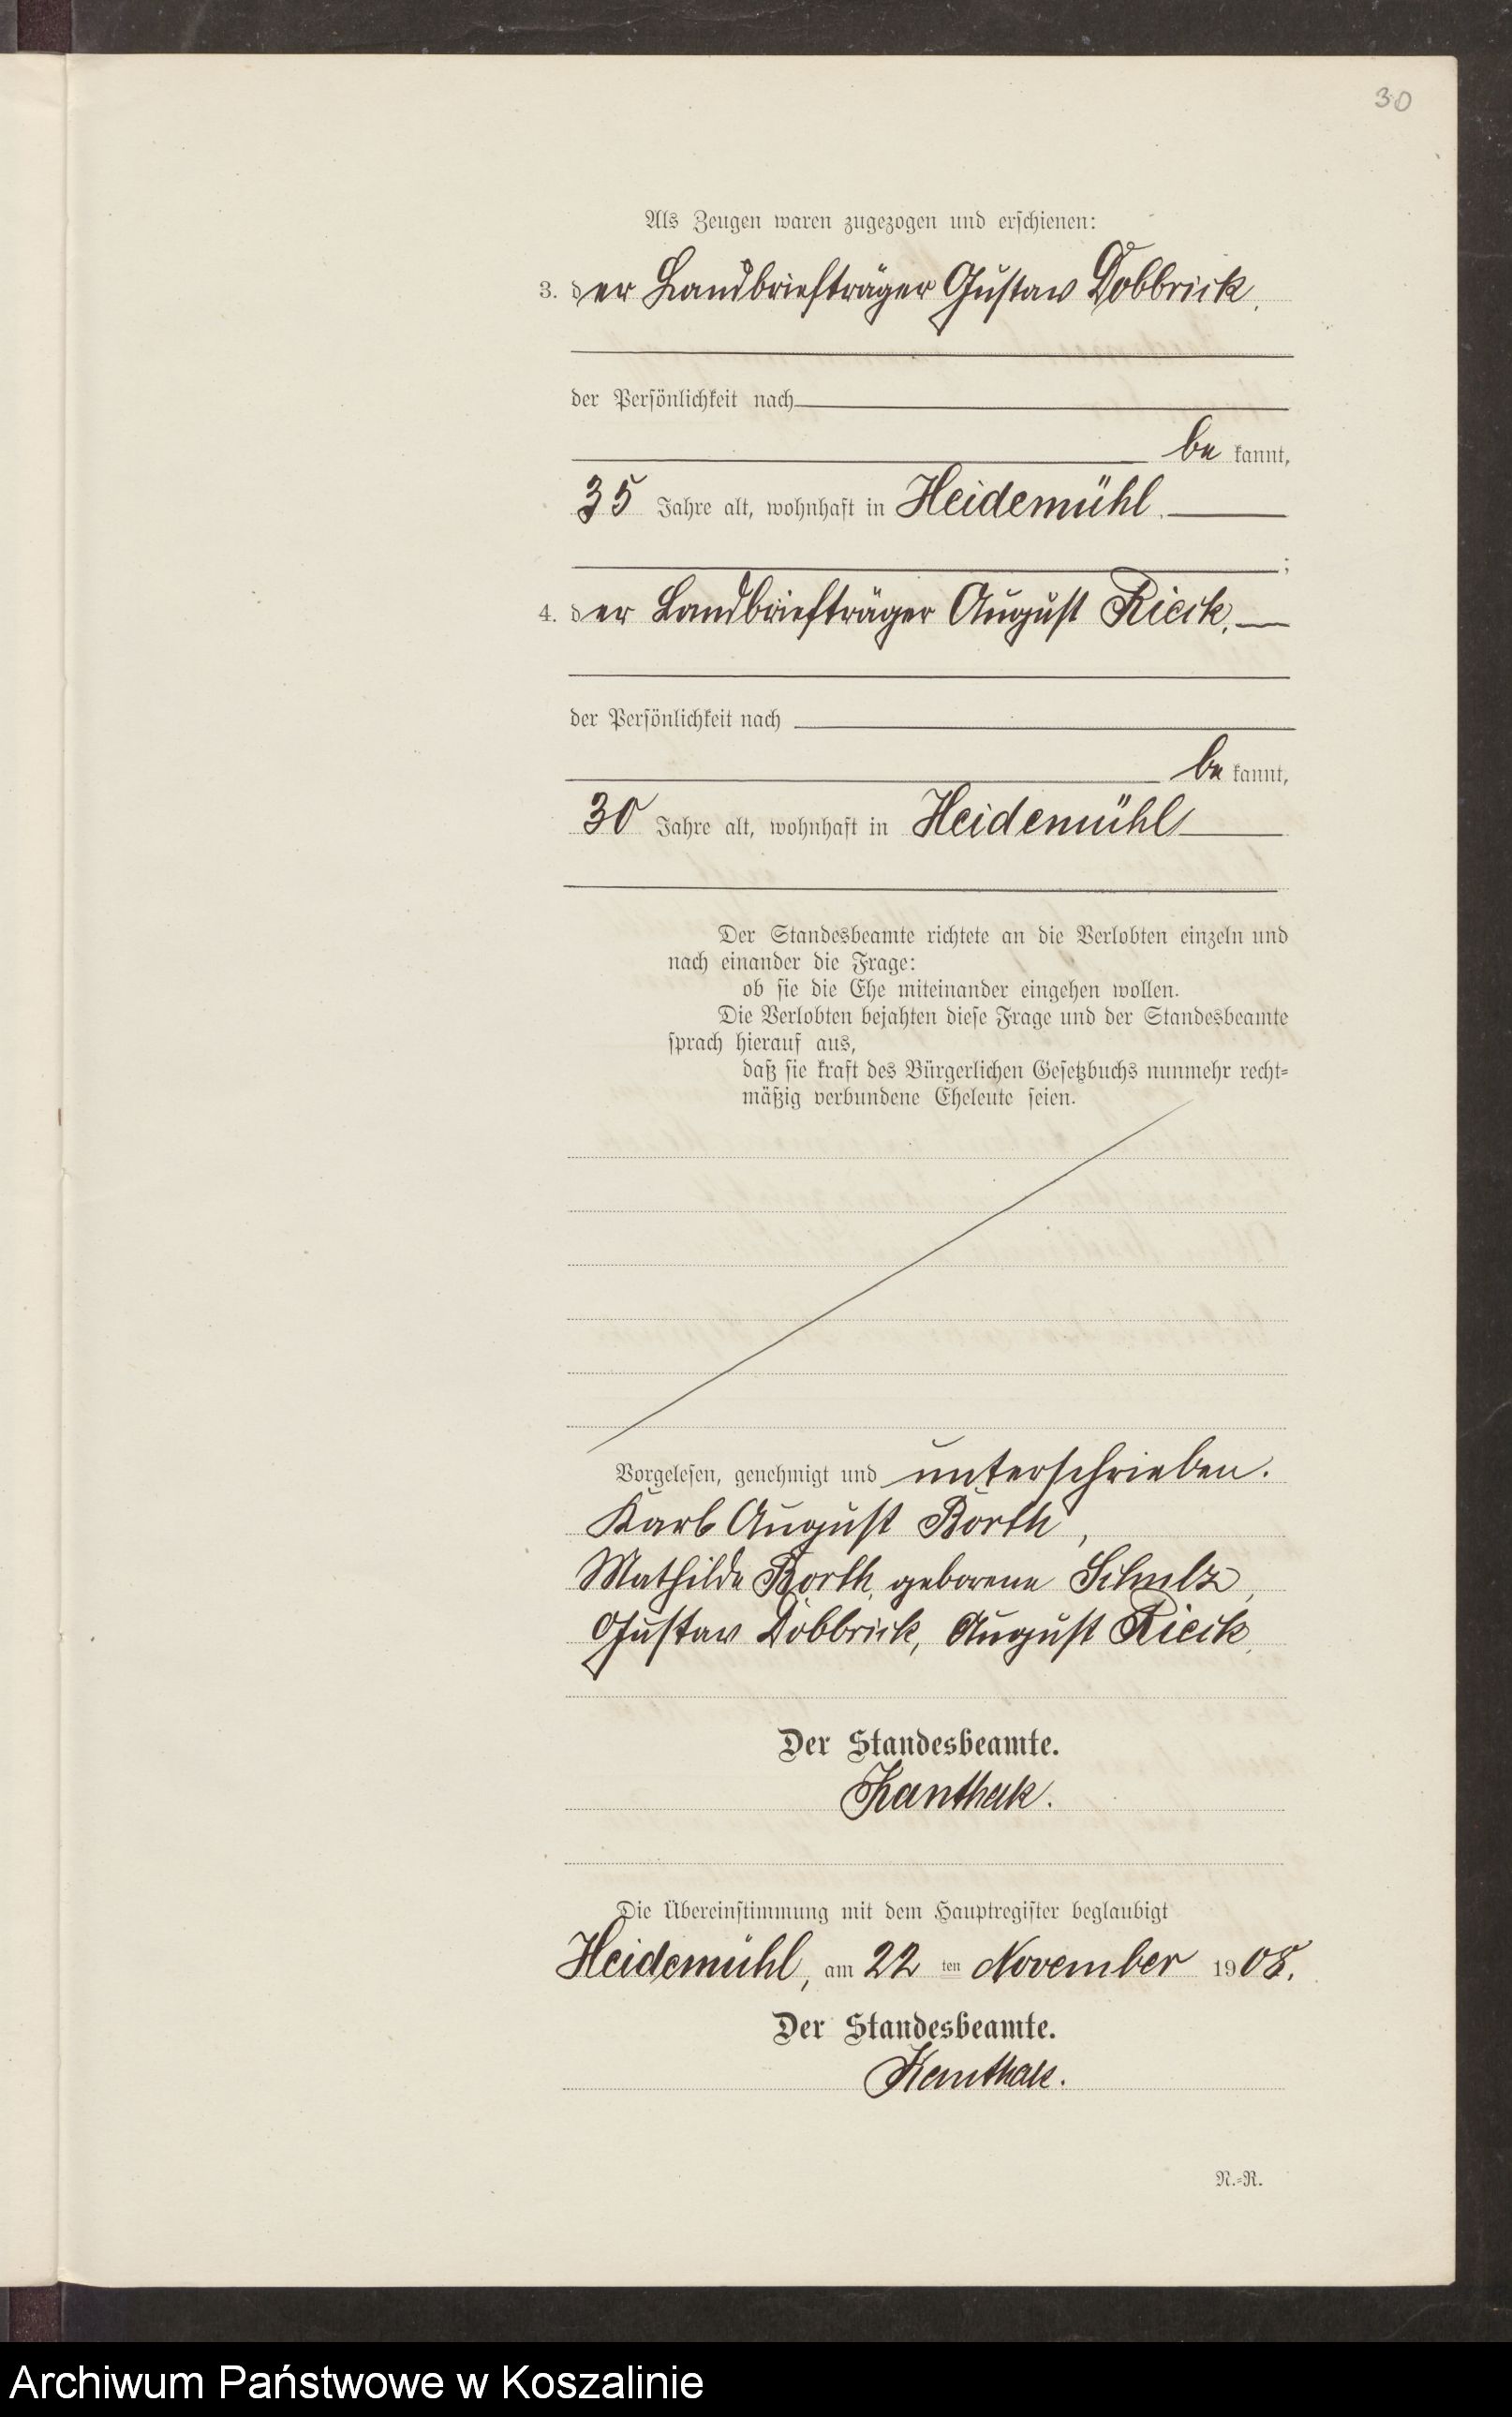 30
Als Zeugen waren zugezogen und erschienen:
3. der Landbriefträger Gustav Dobbrick,
der Persönlichkeit nach
be kannt,
35 Jahre alt, wohnhaft in Heidemühl.
;
4. der Landbriefträger August Rieck,
der Persönlichkeit nach
be kannt,
30 Jahre alt, wohnhaft in Heidemühl
Der Standesbeamte richtete an die Verlobten einzeln und
nach einander die Frage:
ob sie die Ehe miteinander eingehen wollen.
Die Verlobten bejahten diese Frage und der Standesbeamte
sprach hierauf aus,
daß sie kraft des Bürgerlichen Gesetzbuchs nunmehr recht-
mäßig verbundene Eheleute seien.
Vorgelesen, genehmigt und unterschrieben.
Karl August Borth,
Mathilde Borth, geborene Schulz,
Gustav Dobbrick, August Rieck,
Der Standesbeamte.
Kanthak.
Die Übereinstimmung mit dem Hauptregister beglaubigt
Heidemühl, am 22 ten November 1908.
Der Standesbeamte.
Kanthak.
N.-R.
Archiwum Państwowe w Koszalinie